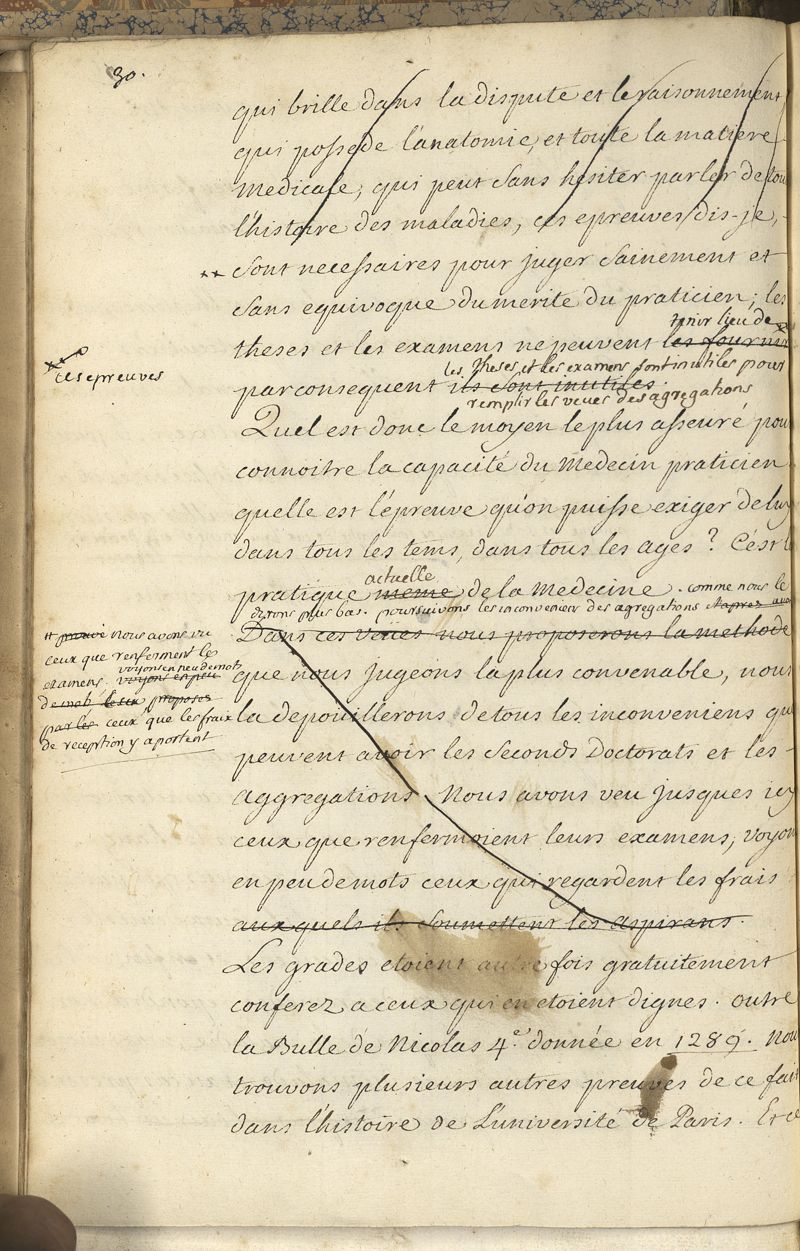 30.
qui brille dans la dispute et le raisonnement
qui possede l'anatomie, et toute la matiere
medicale, qui peut sans hesiter parler de tou
l'histoire des maladies, ces epreuves dis-je,
sont necessaires pour juger sainement et
sans equivoque du merite du praticien; les
tenir lieu de
theses et les examens ne peuvent les fournir
les epreuves
les theses, et les examens sont inutiles pour
par consequent ils sont inutiles.
remplir les veues des agregations
Quel est donc le moyen le plus asseuré pou
connoitre la capacité du Medecin praticien
quelle est l'épreuve qu'on puisse exiger de luy
dans tous les tems, dans tous les ages? C'est l
actuelle
pratique meme de la Medecine. comme nous le
dirons plus bas. poursuivons les inconveniens des agregations
Dans ces veües nous proposerons la methode
nous avons vu
ceux que renferment les
voyons en peu de mots
examens. voyons en peu
de mots
par les ceux que les frais
de reception y aportent
que nous jugeons la plus convenable, nous
la depouillerons de tous les inconveniens qu
peuvent avoir les seconds Doctorats et les
aggregations. Nous avons veu jusques icy
ceux que renfermoient leurs examens, voyon
en peu de mots ceux qui regardent les frais
aux quels ils soumettent les aspirans.
Les grades etoient autre fois gratuitement
conferez a ceux qui en etoient dignes. outre
la Bulle de Nicolas 4.e donnée en 1289. Nou
trouvons plusieurs autres preuves de ce fait
dans l'histoire de L'université de Paris. Et ce